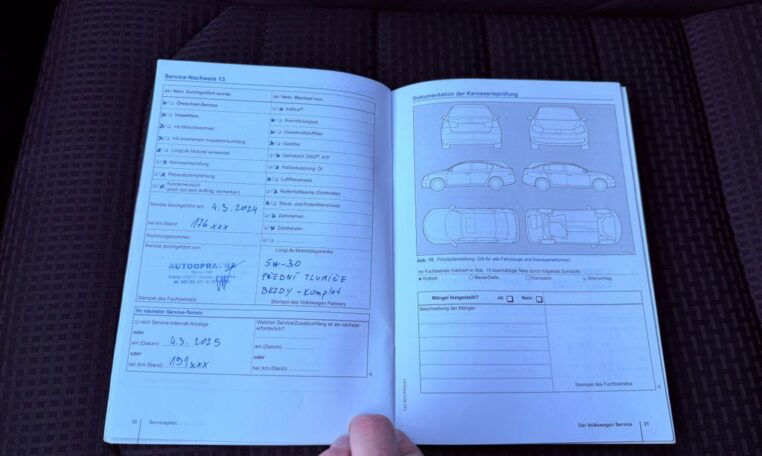 Service-Nachweis 13
Ja / Nein, Durchgeführt wurde:
Ja / Nein, Wechsel von:
Ölwechsel-Service
AdBlue®
Inspektion
Bremsflüssigkeit
mit Motorölwechsel
Dieselkraftstofffilter
mit erweitertem Inspektionsumfang
Gasfilter
LongLife Motoröl verwendet
Getriebeöl: DSG®, AT6
Karosserieprüfung
Haldexkupplung: Öl
Reparaturempfehlung
Luftfiltereinsatz
Kundenwunsch
(durch auf dem Auftrag vermerken)
Reifenfüllflasche (Dichtmittel)
Staub- und Pollenfiltereinsatz
Service durchgeführt am: 4.3.2024
Zahnriemen
bei km-Stand: 176xxx
Zündkerzen
Rechnungsnummer:
Service durchgeführt von:
LongLife Mobilitätsgarantie
AUTOOPRAVNA
5W-30
PŘEDNÍ TLUMIČE
BRZDY - komplet
Stempel des Fachbetriebs
Stempel des Volkswagen Partners
Ihr nächster Service-Termin
nach Service-Intervall-Anzeige
oder
am (Datum): 4.3.2025
oder
bei (km-Stand): 191xxx
Welcher Service/Zusatzumfang ist als nächster
erforderlich?
am (Datum):
oder
bei (km-Stand):
30
Serviceplan
Dokumentation der Karosserieprüfung
Abb. 19 Prinzipdarstellung. Gilt für alle Fahrzeuge und Karosserieformen.
Ihr Fachbetrieb markiert in Abb. 19 beschädigte Teile durch folgende Symbole:
Kratzer
Beule/Delle
Korrosion
Steinschlag
Mängel festgestellt?
Ja:
Nein:
Beschreibung der Mängel:
Stempel des Fachbetriebs
Der Volkswagen Service
31